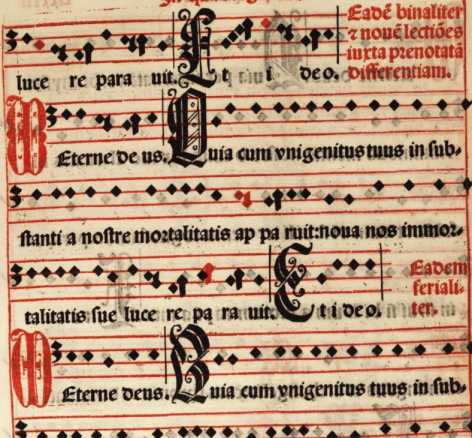 luce re para uit. Et i deo.
Eadē binaliter
⁊ nouē lectiōes
iuxta prenotatā
differentiam.
Eterne de us. Quia cum vnigenitus tuus in sub-
stanti a nostre mortalitatis ap pa ruit:noua nos immor-
talitatis sue luce re pa ra uit. Et i de o.
Eadem
feriali-
ter.
Eterne deus. Quia cum vnigenitus tuus in sub-